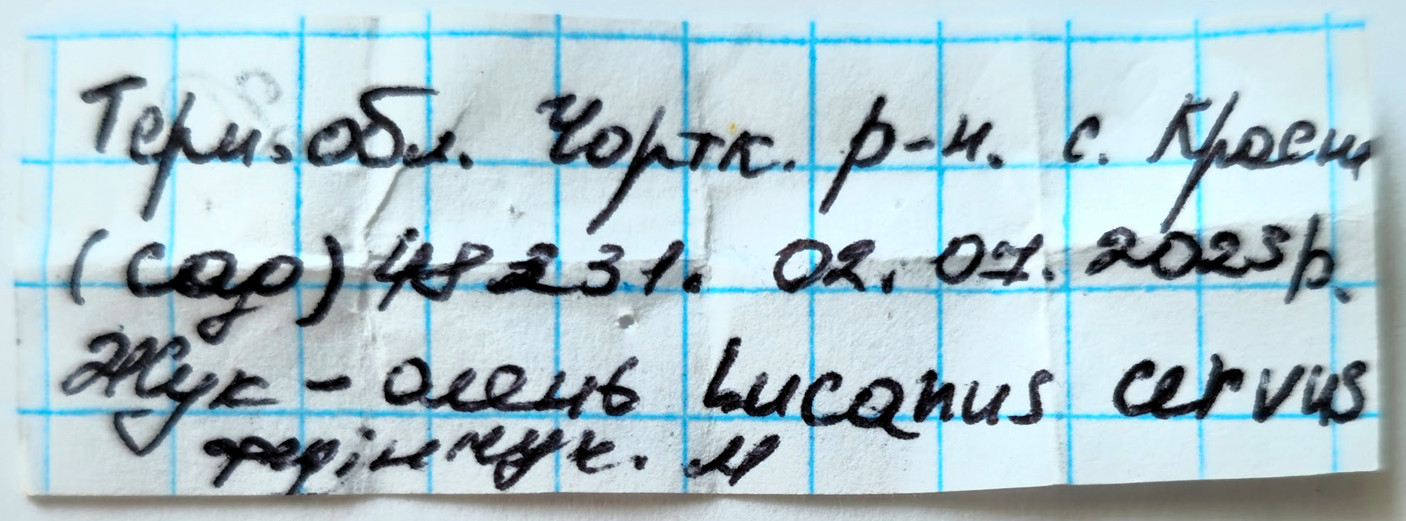 Терн. обл. Чортк. р-н. с. Красн
(сад) 48231. 02.07.2023р.
Жук - олень Lucanus cervus
М